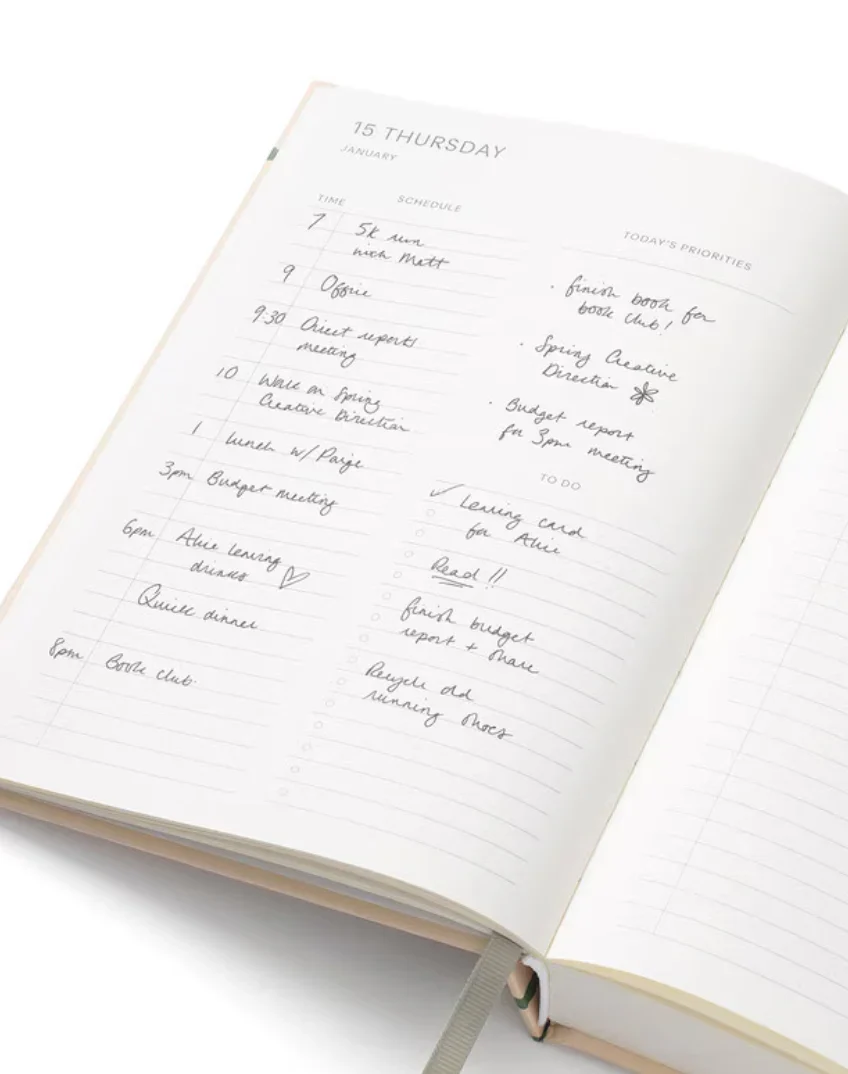 15 THURSDAY
JANUARY
TIME
SCHEDULE
7
5k run
with Matt
9
Office
9.30
Direct reports
meeting
10
Work on Spring
Creative Direction
1
Lunch w/ Paige
3pm
Budget meeting
6pm
Alice leaving
drinks ♡
Quick dinner
8pm
Book club.
TODAY'S PRIORITIES
· finish book for
book club!
· Spring Creative
Direction
· Budget report
for 3pm meeting
TO DO
✓ Leaving card
for Alice
Read !!
finish budget
report + share
Recycle old
running shoes